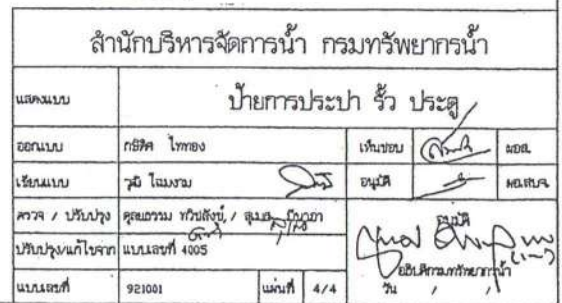 สำนักบริหารจัดการน้ำ กรมทรัพยากรน้ำ
แสดงแบบ ป้ายการประปา รั้ว ประตู
ออกแบบ ไททอง เห็นชอบ ผอส.
เขียนแบบ วุฒิ โฉมงาม อนุมัติ
ตรวจ / ปรับปรุง / อนุมัติ
ปรับปรุง/แก้ไขจาก แบบเลขที่ 4005
อธิบดีกรมทรัพยากรน้ำ
แบบเลขที่ 921001 แผ่นที่ 4/4 วัน / /